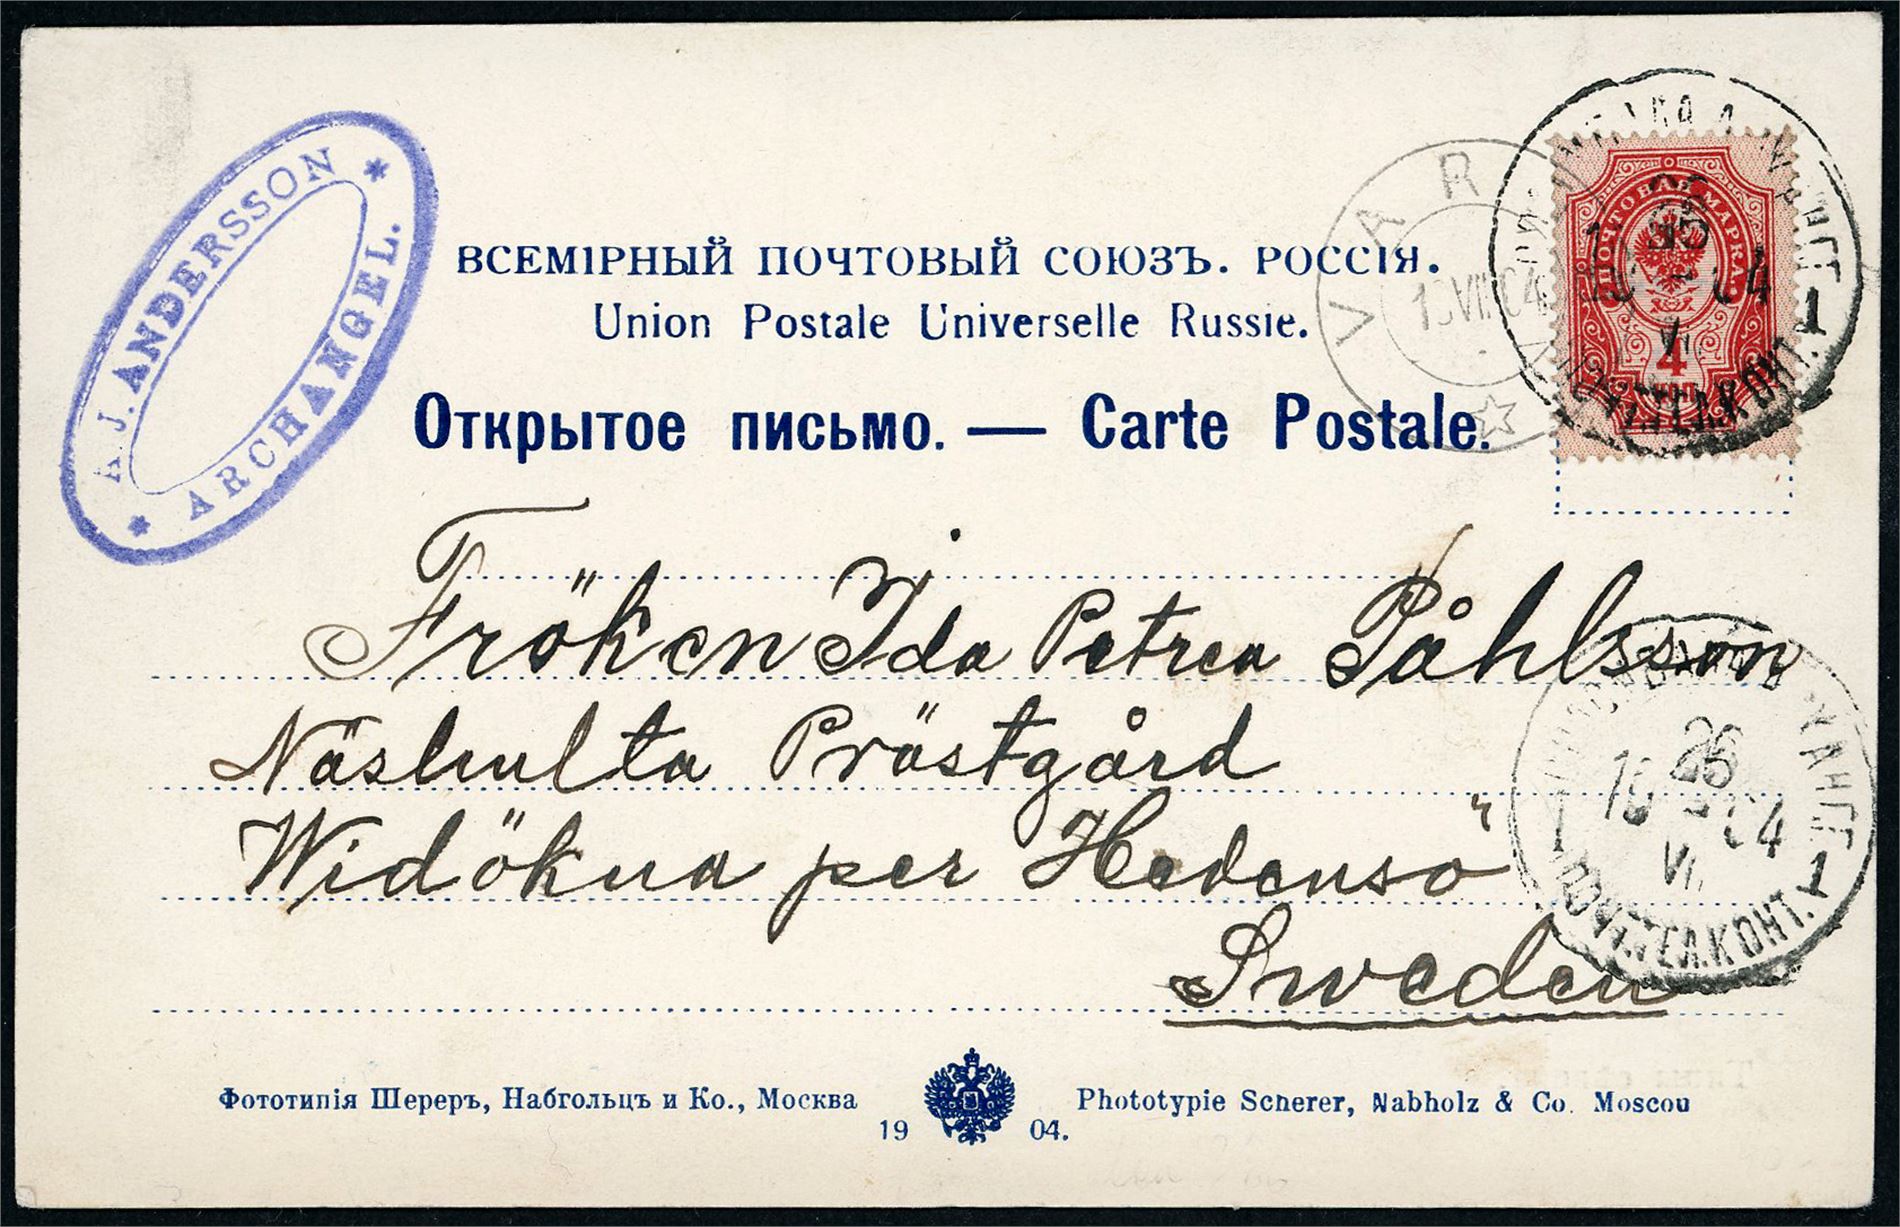 A. J. ANDERSSON
* ARCHANGEL. *
ВСЕМІРНЫЙ ПОЧТОВЫЙ СОЮЗЪ. РОССІЯ.
Union Postale Universelle Russie.
Открытое письмо. — Carte Postale.
VAR
VII 04
ПОЧТОВАЯ МАРКА
4
КОП.
04
1
Fröken Ida Petrea Påhlsson
Näshulta Prästgård
Widökna per Hedensö
Sweden
26
04
VII
ПОЧТ.ТЕЛ.КОНТ. 1
Фототипія Шереръ, Набгольцъ и Ко., Москва
1904.
Phototypie Scherer, Nabholz & Co. Moscou